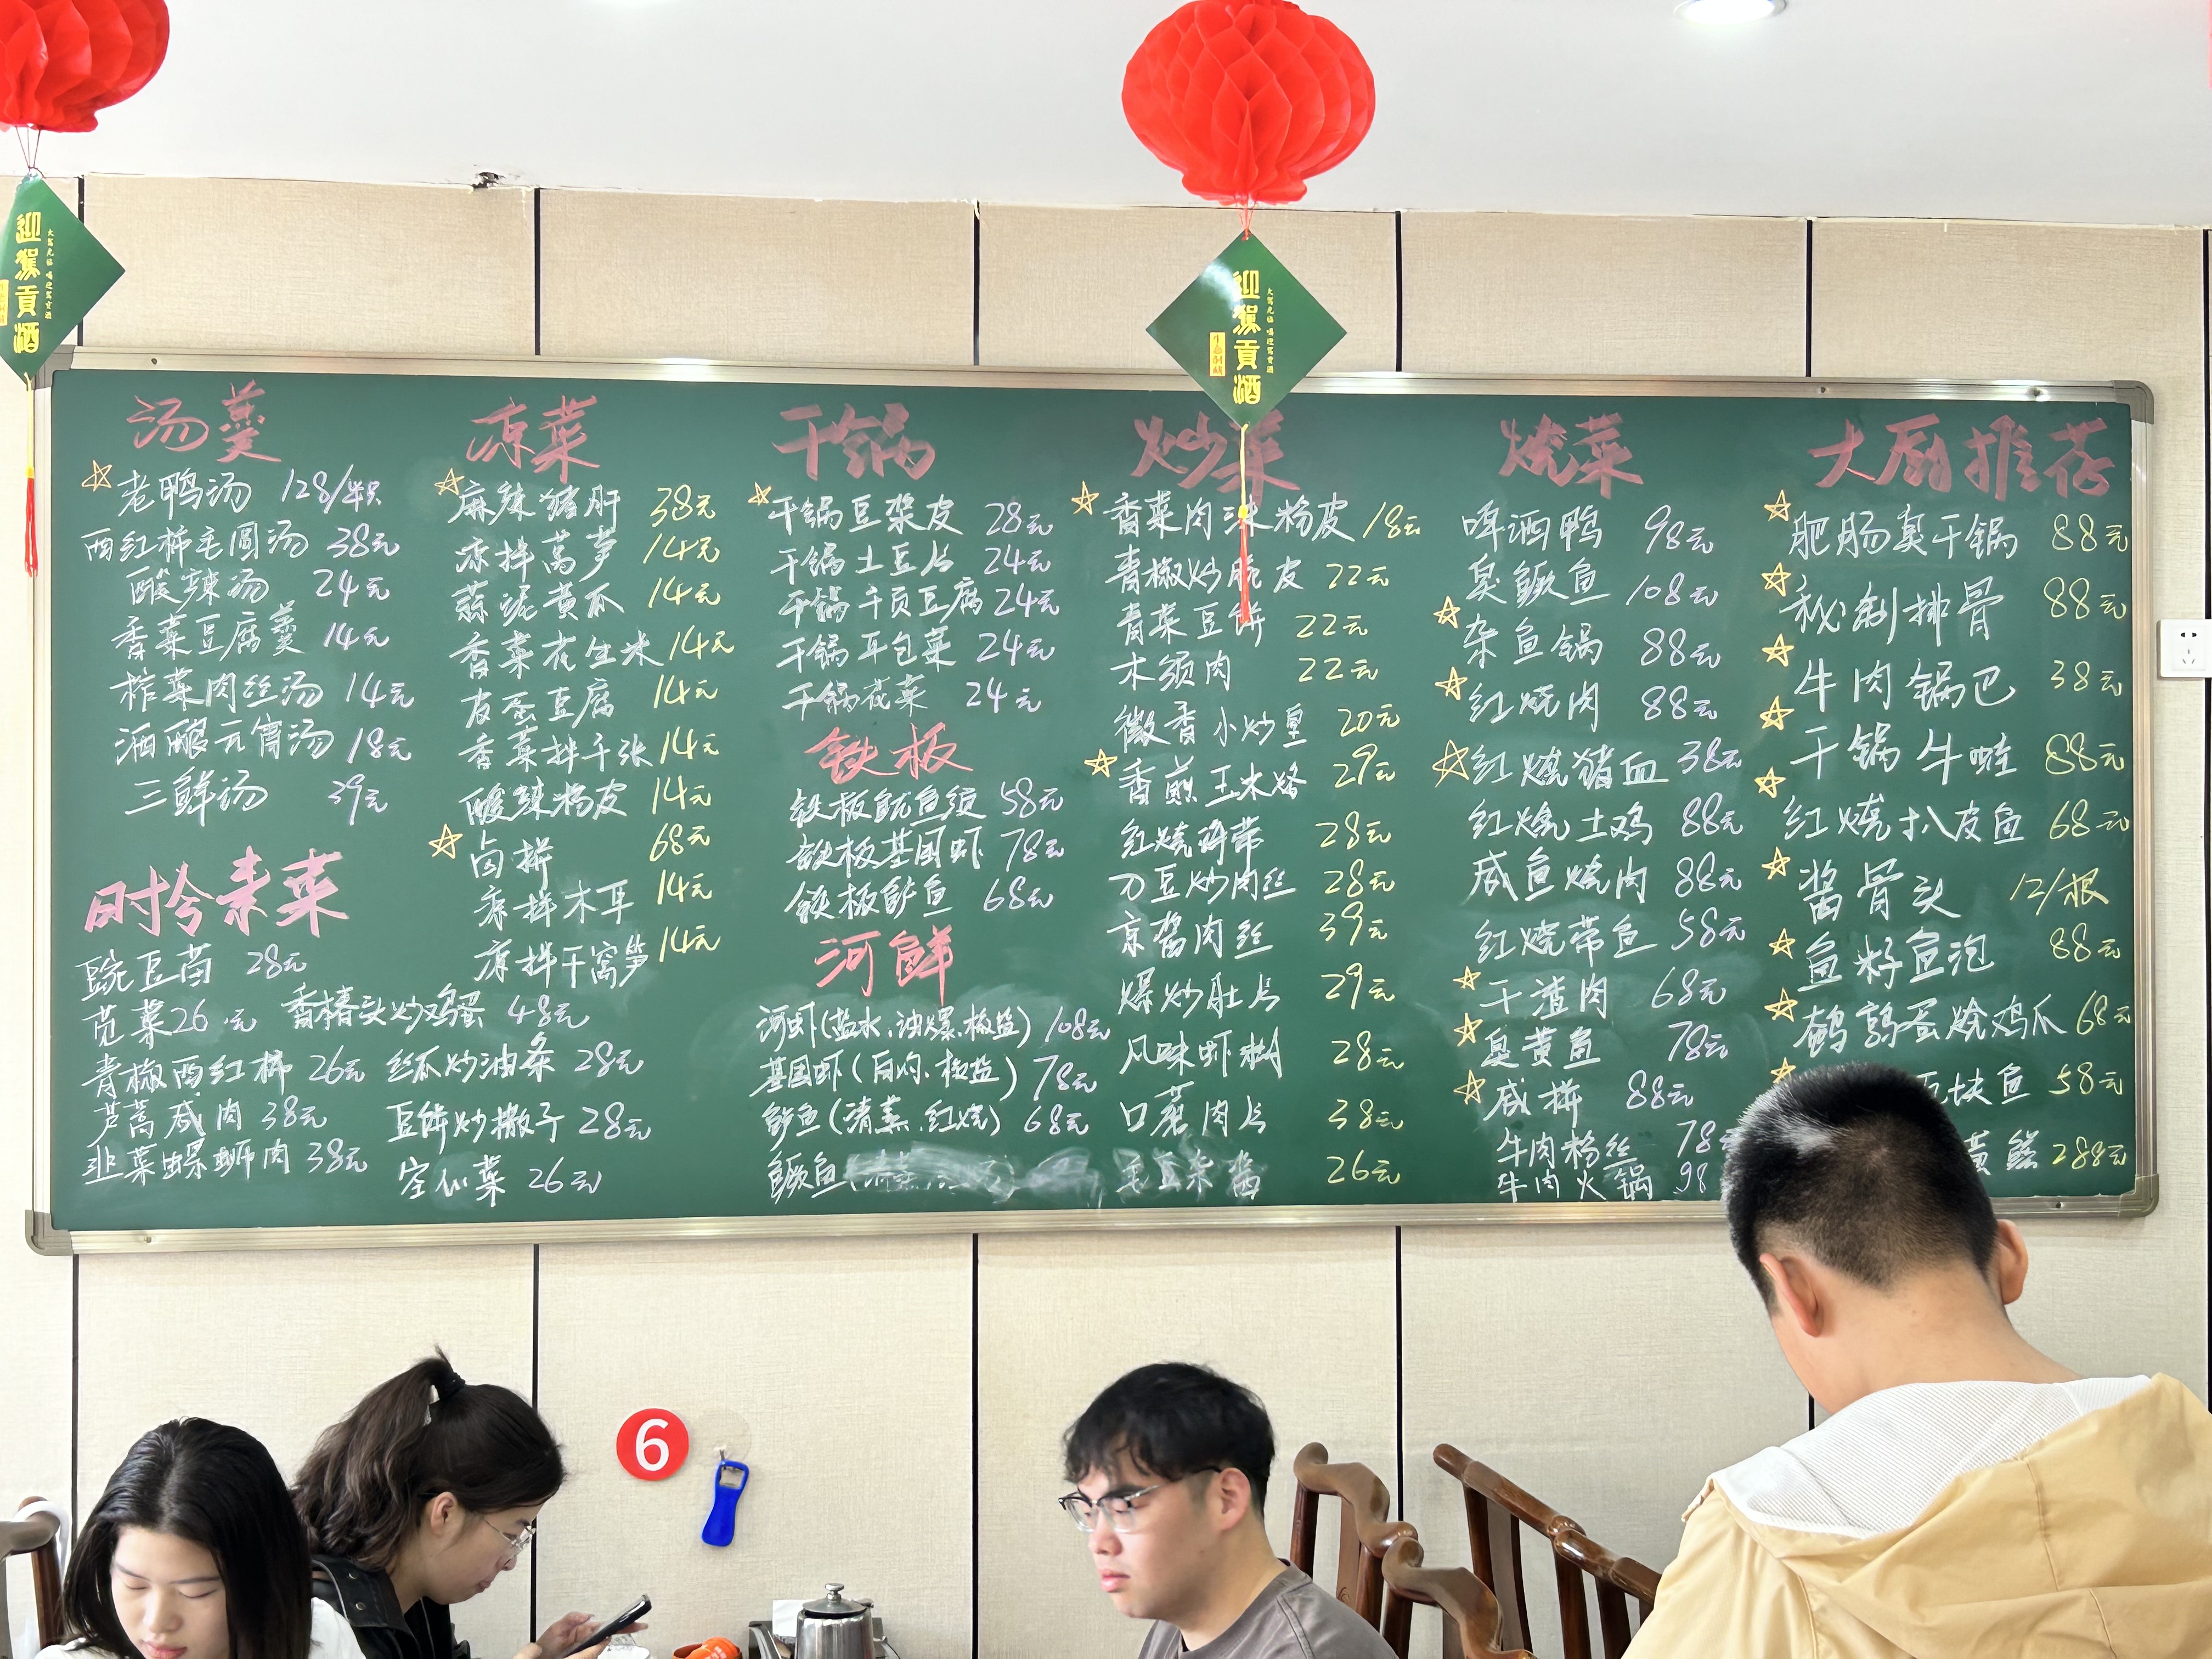 迎駕貢酒
迎駕貢酒
大駕光臨 喝迎駕貢酒
汤羹
老鸭汤 128/半只
西红柿毛圆汤 38元
酸辣汤 24元
香菜豆腐羹 14元
榨菜肉丝汤 14元
酒酿元宵汤 18元
三鲜汤 39元
时令素菜
豌豆苗 28元
苋菜 26元 香椿头炒鸡蛋 48元
青椒西红柿 26元 丝瓜炒油条 28元
芦蒿咸肉 38元 豆饼炒撒子 28元
韭菜螺蛳肉 38元
空心菜 26元
凉菜
麻辣猪肝 38元
凉拌莴笋 14元
蒜泥黄瓜 14元
香菜花生米 14元
皮蛋豆腐 14元
香菜拌千张 14元
酸辣粉皮 14元
卤拼 68元
凉拌木耳 14元
凉拌干窝笋 14元
干锅
干锅豆浆皮 28元
干锅土豆片 24元
干锅千页豆腐 24元
干锅耳包菜 24元
干锅花菜 24元
铁板
铁板鱿鱼须 58元
铁板基围虾 78元
铁板鲈鱼 68元
河鲜
河虾(盐水、油爆、椒盐) 108元
基围虾(白灼、椒盐) 78元
鲈鱼(清蒸、红烧) 68元
鳜鱼
炒菜
香菜肉沫粉皮 18元
青椒炒脆皮 22元
青菜豆饼 22元
木须肉 22元
微香小炒皇 20元
香煎玉米烙 29元
红烧海带 28元
刀豆炒肉丝 28元
京酱肉丝 39元
爆炒肚片 29元
风味虾树 28元
口蘑肉片 38元
毛豆米酱 26元
烧菜
啤酒鸭 98元
臭鳜鱼 108元
杂鱼锅 88元
红烧肉 88元
红烧猪血 38元
红烧土鸡 88元
咸鱼烧肉 88元
红烧带鱼 58元
干渣肉 68元
臭黄鱼 78元
咸拼 88元
牛肉粉丝 78
牛肉火锅 98
大厨推荐
肥肠臭干锅 88元
秘制排骨 88元
牛肉锅巴 38元
干锅牛蛙 88元
红烧扒皮鱼 68元
酱骨头 12/根
鱼籽鱼泡 88元
鹌鹑蛋烧鸡爪 68元
块鱼 58元
黄鳝 288元
6